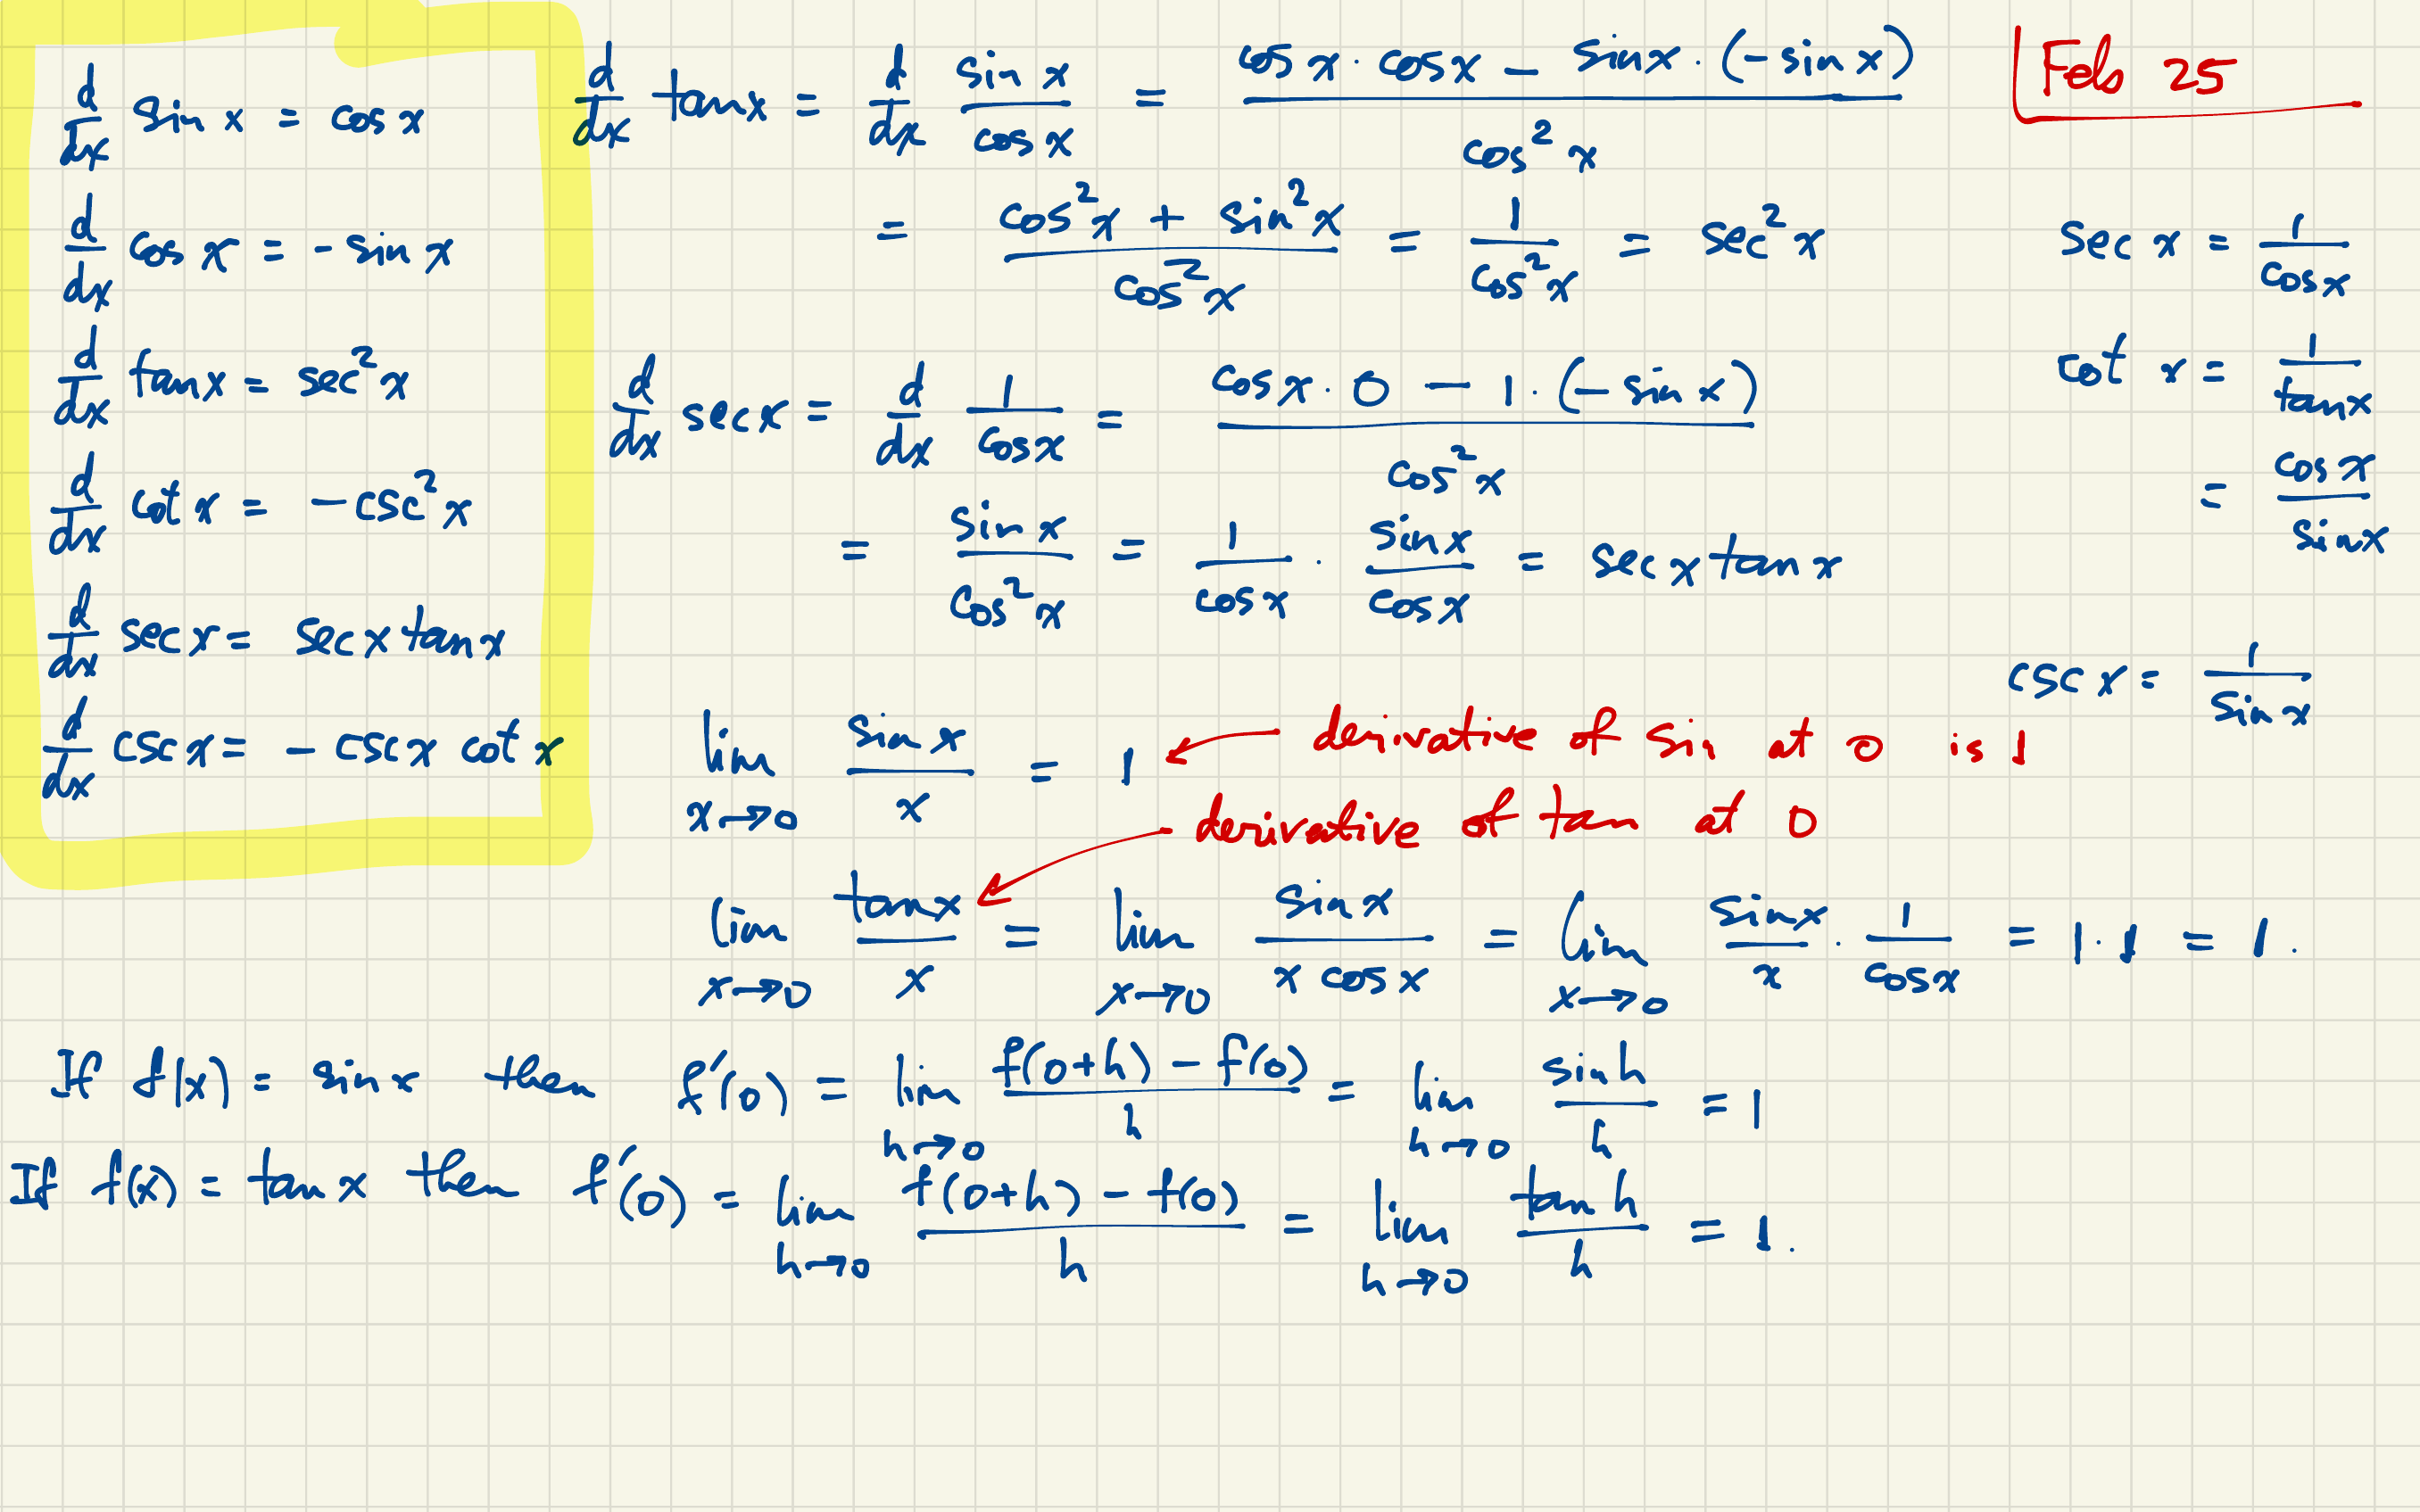 Feb 25
d/dx sin x = cos x
d/dx cos x = - sin x
d/dx tan x = sec² x
d/dx cot x = - csc² x
d/dx sec x = sec x tan x
d/dx csc x = - csc x cot x
d/dx tan x = d/dx sin x / cos x = (cos x · cos x - sin x · (- sin x)) / cos² x
= (cos² x + sin² x) / cos² x = 1 / cos² x = sec² x
d/dx sec x = d/dx 1 / cos x = (cos x · 0 - 1 · (- sin x)) / cos² x
= sin x / cos² x = 1 / cos x · sin x / cos x = sec x tan x
sec x = 1 / cos x
cot x = 1 / tan x
= cos x / sin x
csc x = 1 / sin x
lim x→0 sin x / x = 1 ← derivative of sin at 0 is 1
derivative of tan at 0
lim x→0 tan x / x = lim x→0 sin x / (x cos x) = lim x→0 sin x / x · 1 / cos x = 1 · 1 = 1.
If f(x) = sin x then f'(0) = lim h→0 (f(0+h) - f(0)) / h = lim h→0 sin h / h = 1
If f(x) = tan x then f'(0) = lim h→0 (f(0+h) - f(0)) / h = lim h→0 tan h / h = 1.